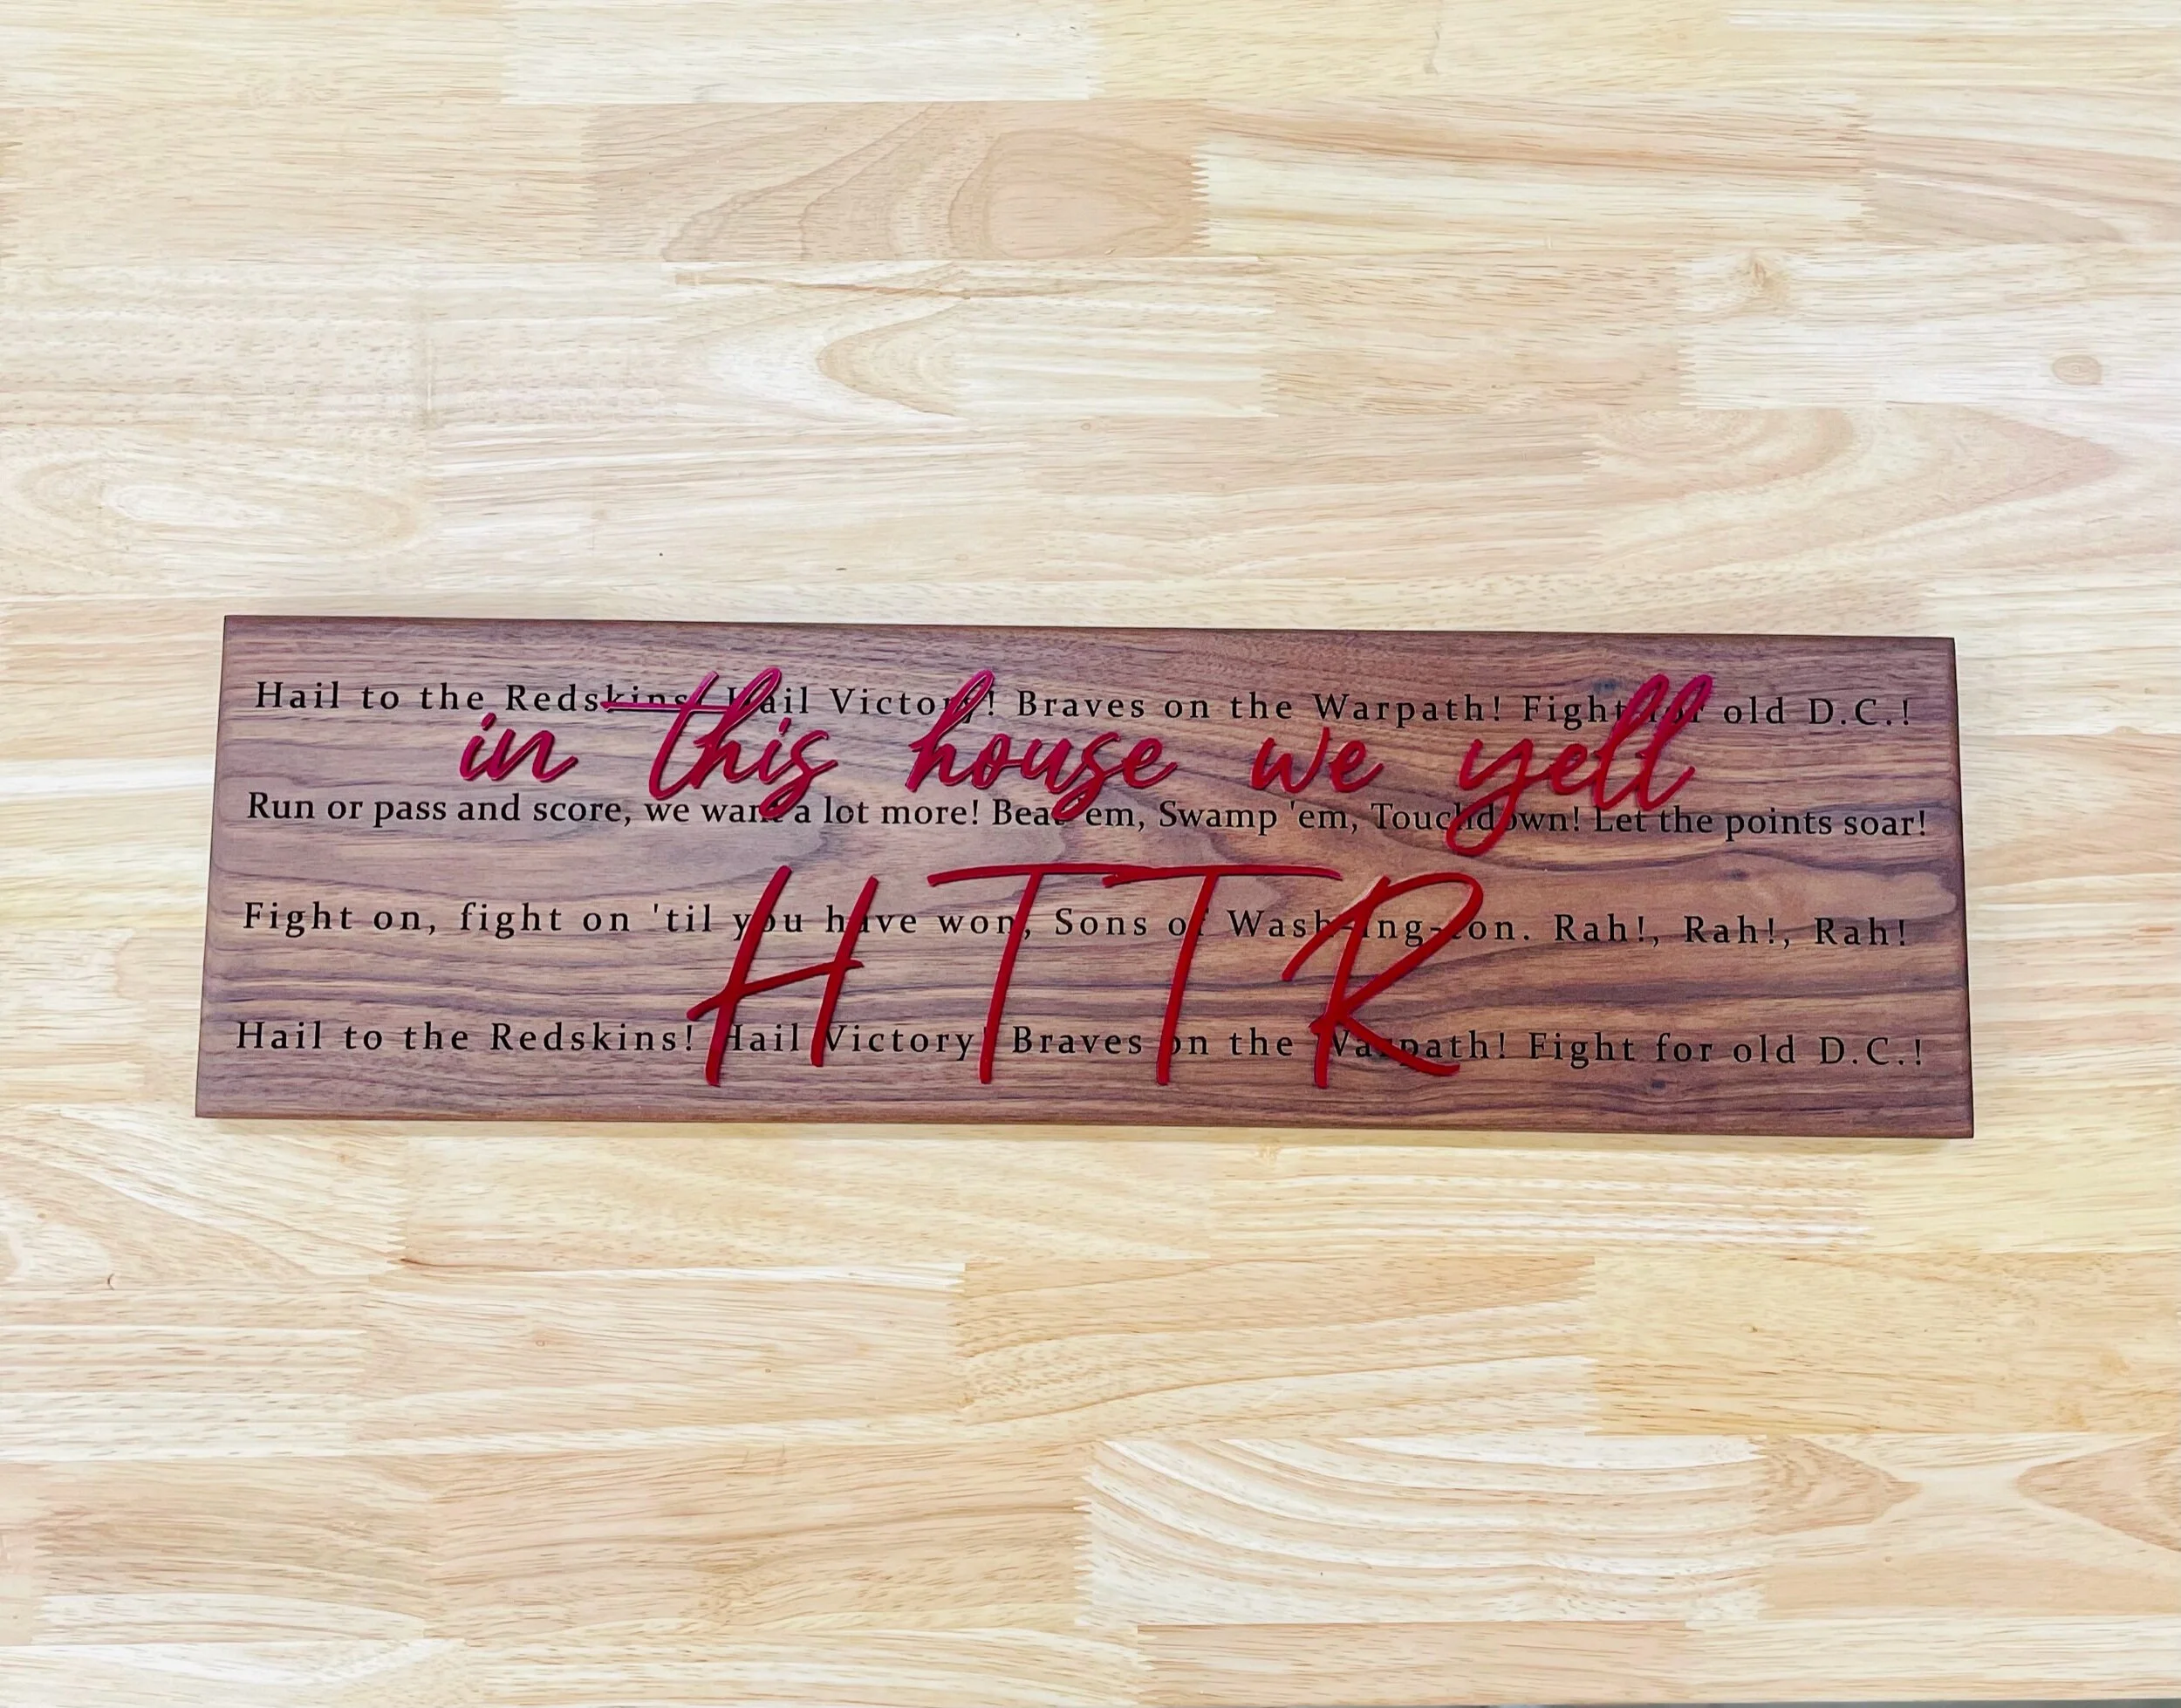 Hail to the Redskins! Hail Victory! Braves on the Warpath! Fight for old D.C.!
in this house we yell
Run or pass and score, we want a lot more! Beat 'em, Swamp 'em, Touchdown! Let the points soar!
HTTR
Fight on, fight on 'til you have won, Sons of Wash-ing-ton. Rah!, Rah!, Rah!
Hail to the Redskins! Hail Victory! Braves on the Warpath! Fight for old D.C.!